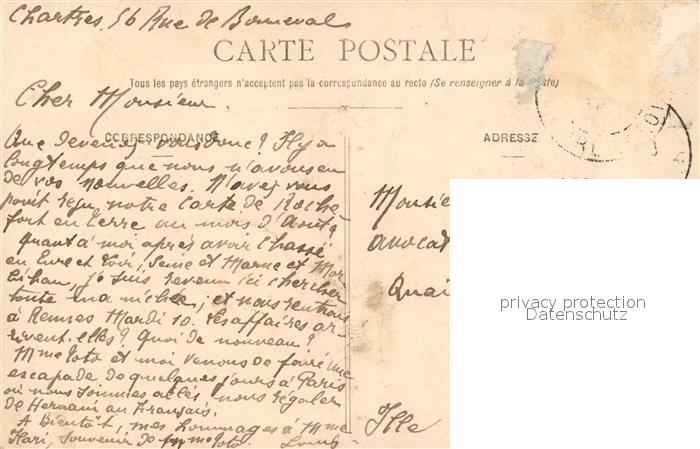 Chartres, 56 Rue de Bonneval
CARTE POSTALE
Tous les pays étrangers n'acceptent pas la correspondance au recto (Se renseigner à la Poste)
Cher Monsieur.
CORRESPONDANCE
Que devenez vous donc? Il y a
longtemps que nous n'avons eu
de vos nouvelles. N'avez vous
point reçu notre carte de Roche-
fort en Terre au mois d'Août?
Quant à moi après avoir chassé
en Eure et Loir, Seine et Marne et Mor-
bihan, je suis revenu ici chercher
toute ma nichée, et nous rentrons
à Rennes Mardi 10. Les affaires ar-
rivent-elles? Quoi de nouveau?
Mme Toto et moi venons de faire une
escapade de quelques jours à Paris
où nous sommes allés nous régaler
de Hernani au Français.
A Bientôt, mes hommages à Mme
Hari, souvenir de Mme Toto.
ADRESSE
Monsie
avocat
Quai
Ille
privacy protection
Datenschutz